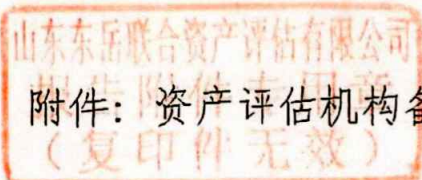 山东东岳联合资产评估有限公司
附件：资产评估机构备
（复印件无效）